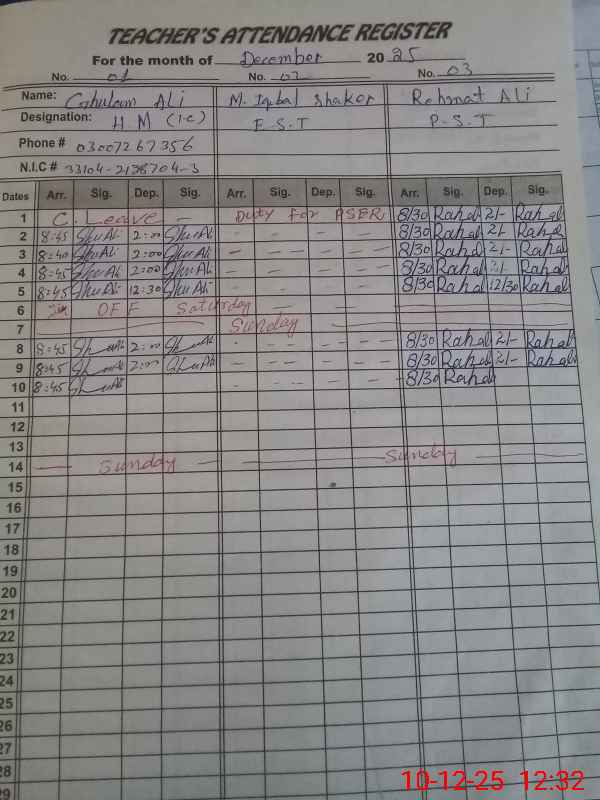 TEACHER'S ATTENDANCE REGISTER
For the month of December 2025
No. 01 No. 02 No. 03
Name: Ghulam Ali M. Iqbal Shaker Rehmat Ali
Designation: H.M (I.C) E.S.T P.S.T
Phone # 03007267356
N.I.C # 33104-2138704-3
Dates Arr. Sig. Dep. Sig. Arr. Sig. Dep. Sig. Arr. Sig. Dep. Sig.
1 C. Leave - Duty for PSER 8/30 Rahal 2/- Rahal
2 8:45 2:00 - - - - 8/30 Rahal 2/- Rahal
3 8:40 2:00 - - - - 8/30 Rahal 2/- Rahal
4 8:45 2:00 - - - - 8/30 Rahal 2/- Rahal
5 8:45 12:30 - - - - 8/30 Rahal 12/30 Rahal
6 OFF Saturday
7 Sunday
8 8:45 2:00 - - - - 8/30 Rahal 2/- Rahal
9 8:45 2:00 - - - - 8/30 Rahal 2/- Rahal
10 8:45 - - - - 8/30 Rahal
11
12
13
14 Sunday Sunday
15
16
17
18
19
20
21
22
23
24
25
26
27
28
29
10-12-25 12:32